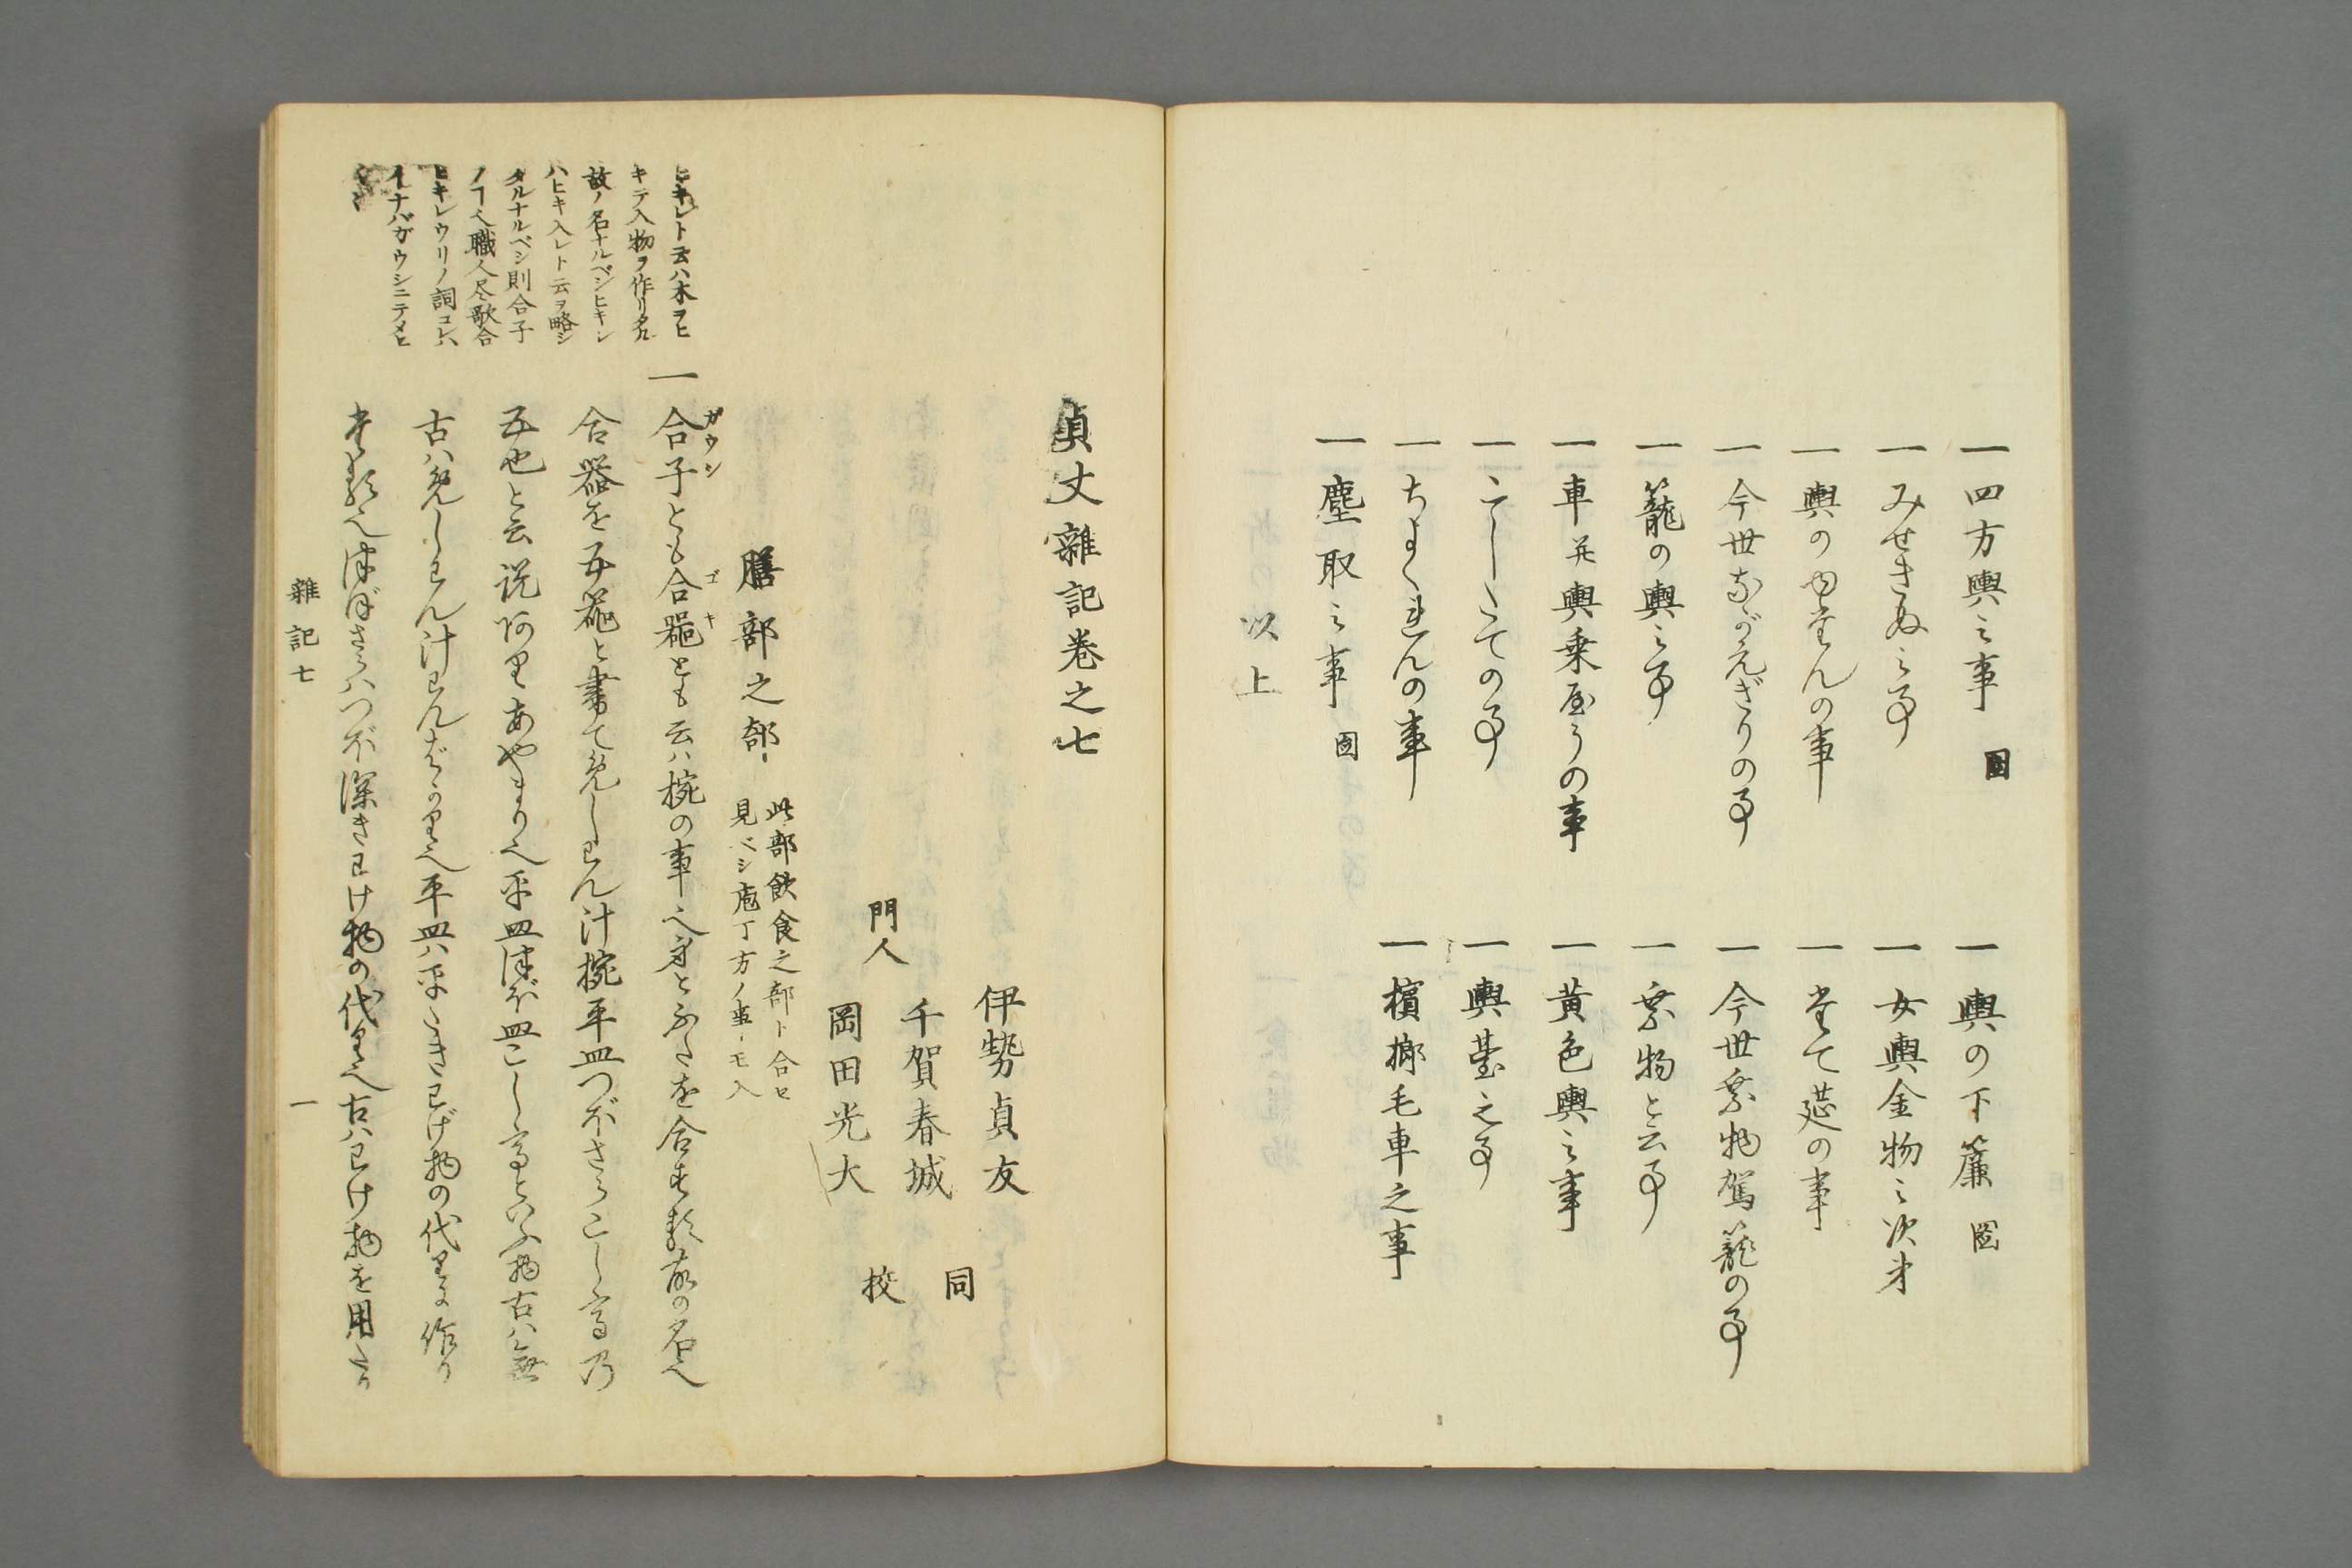 一四方輿之事 圖
一みせきぬ之事
一輿のゆたんの事
一今世ながえぎりの事
一籠の輿之事
一車并輿乗やうの事
一こしたての事
一ちよくれんの事
一塵取之事 圖
一輿の下簾 圖
一女輿金物之次第
一たて莚の事
一今世乗物駕籠の事
一乗物と云事
一黄色輿之事
一輿臺之事
一檳榔毛車之事
以上
貞丈雜記巻之七
伊勢貞友
門人 千賀春城 同
岡田光大 校
膳部之部 此部飲食之部ト合セ
見ベシ庖丁方ノ事モ入
一合子とも合器とも云ハ椀の事也身とふたを合する故の名也
ガウシ
ゴキ
合器を五器と書てめしわん汁椀平皿つぼさらこし高乃
五也と云説あり あやまり也平皿つぼ皿こし高といふ物古ハ無
古ハめしわん汁わんばかり也平皿ハ平たきわげ物の代りに作り
たる也つぼさらハつぼ深きわけ物の代り也古ハわけ物を用たり
ヒキレト云ハ木ヲヒ
キテ入物ヲ作リタル
故ノ名ナルベシヒキレ
ハヒキ入レト云ヲ略シ
タルナルベシ則合子
ノ丁也職人尽歌合
ヒキレウリノ詞コレハ
イナバガウシニテメヒ
雜記七
一